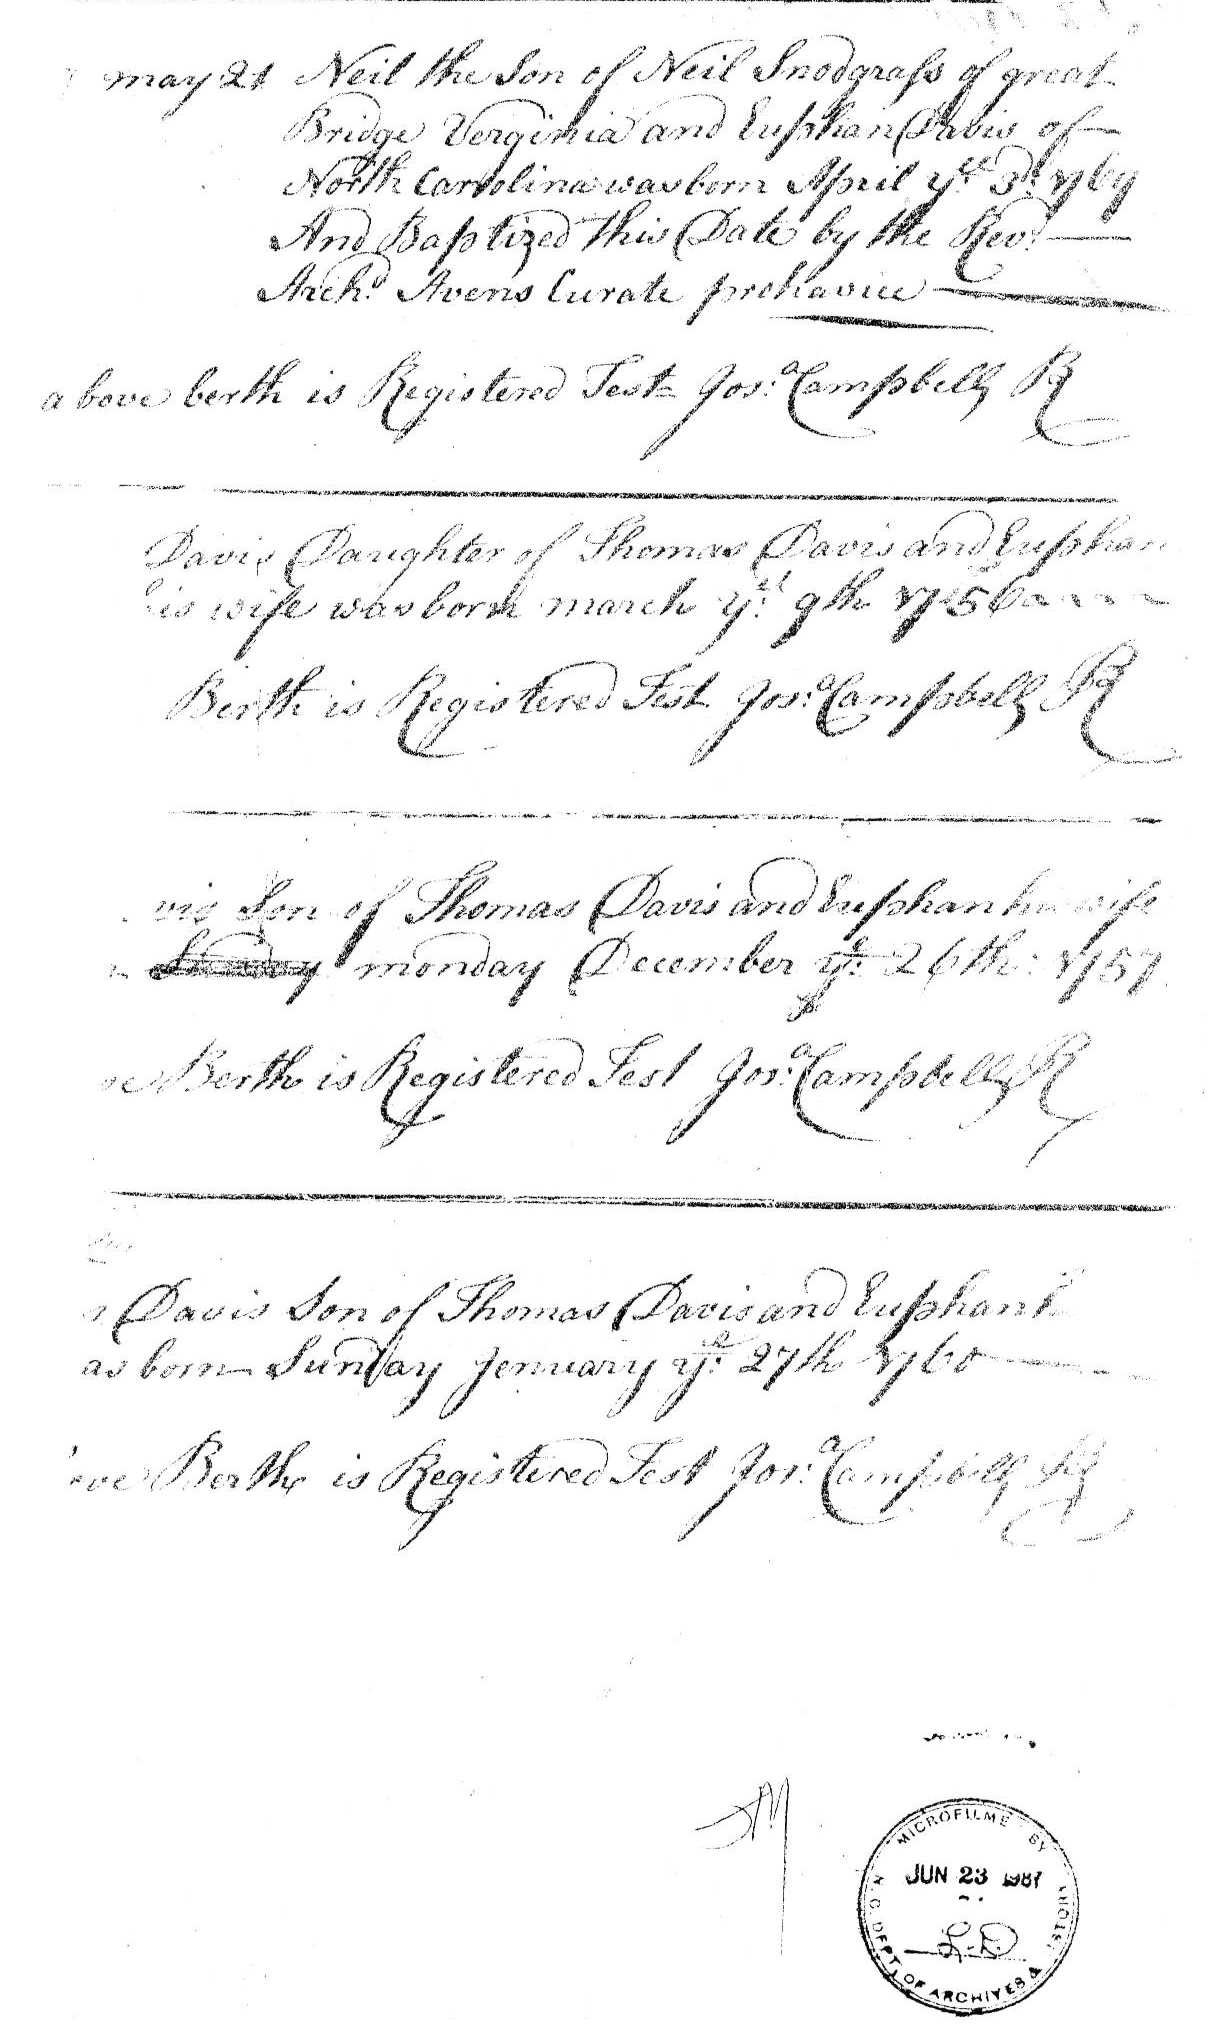 may 21 Neil the Son of Neil Snodgrass of great
Bridge Verginia and Euphan Davis of
North Carrolina was born April ye 3d 1767
And Baptized this Date by the Revd
Archd Avens Curate prohavice
above berth is Registered Test Josa Campbell R
Davis Daughter of Thomas Davis and Euphan
his wife was born march ye 9th 1756
Berth is Registered Test Josa Campbell R
vis Son of Thomas Davis and Euphan his wife
monday December ye 26th 1757
ve Berth is Registered Test Josa Campbell R
Davis Son of Thomas Davis and Euphan h
as born Sunday Jenuary ye 27th 1760
ove Berth is Registered Test Josa Campbell R
MICROFILME BY
JUN 23 1987
N.C. DEPT. OF ARCHIVES &